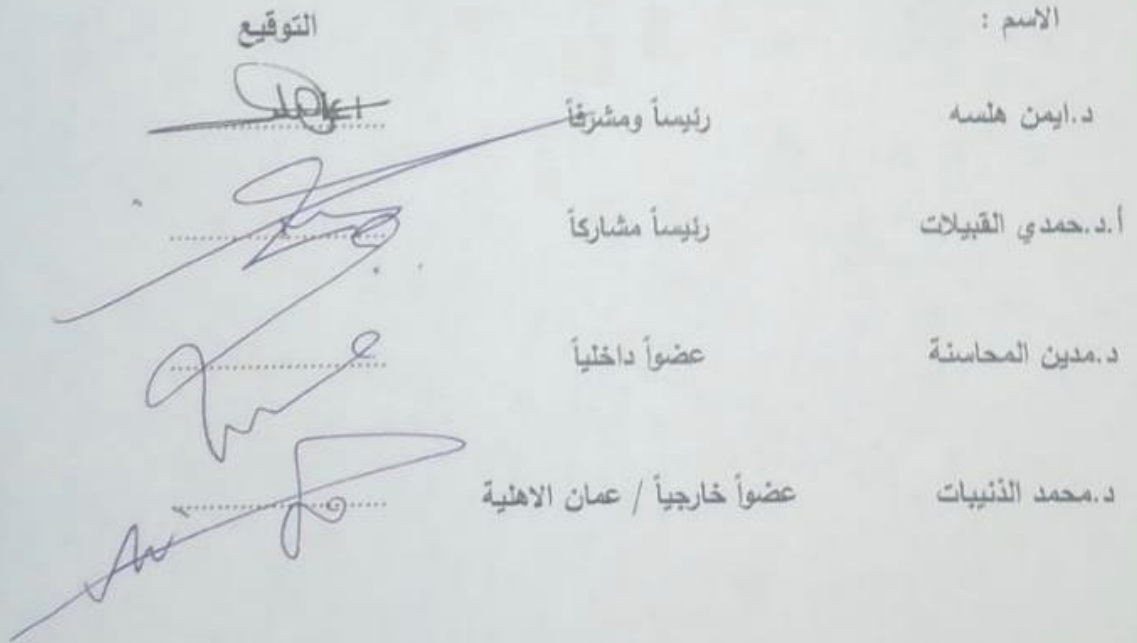 الاسم : التوقيع
د.ايمن هلسه رئيساً ومشرفاً
أ.د.حمدي القبيلات رئيساً مشاركاً
د.مدين المحاسنة عضواً داخلياً
د.محمد الذنيبات عضواً خارجياً / عمان الاهلية